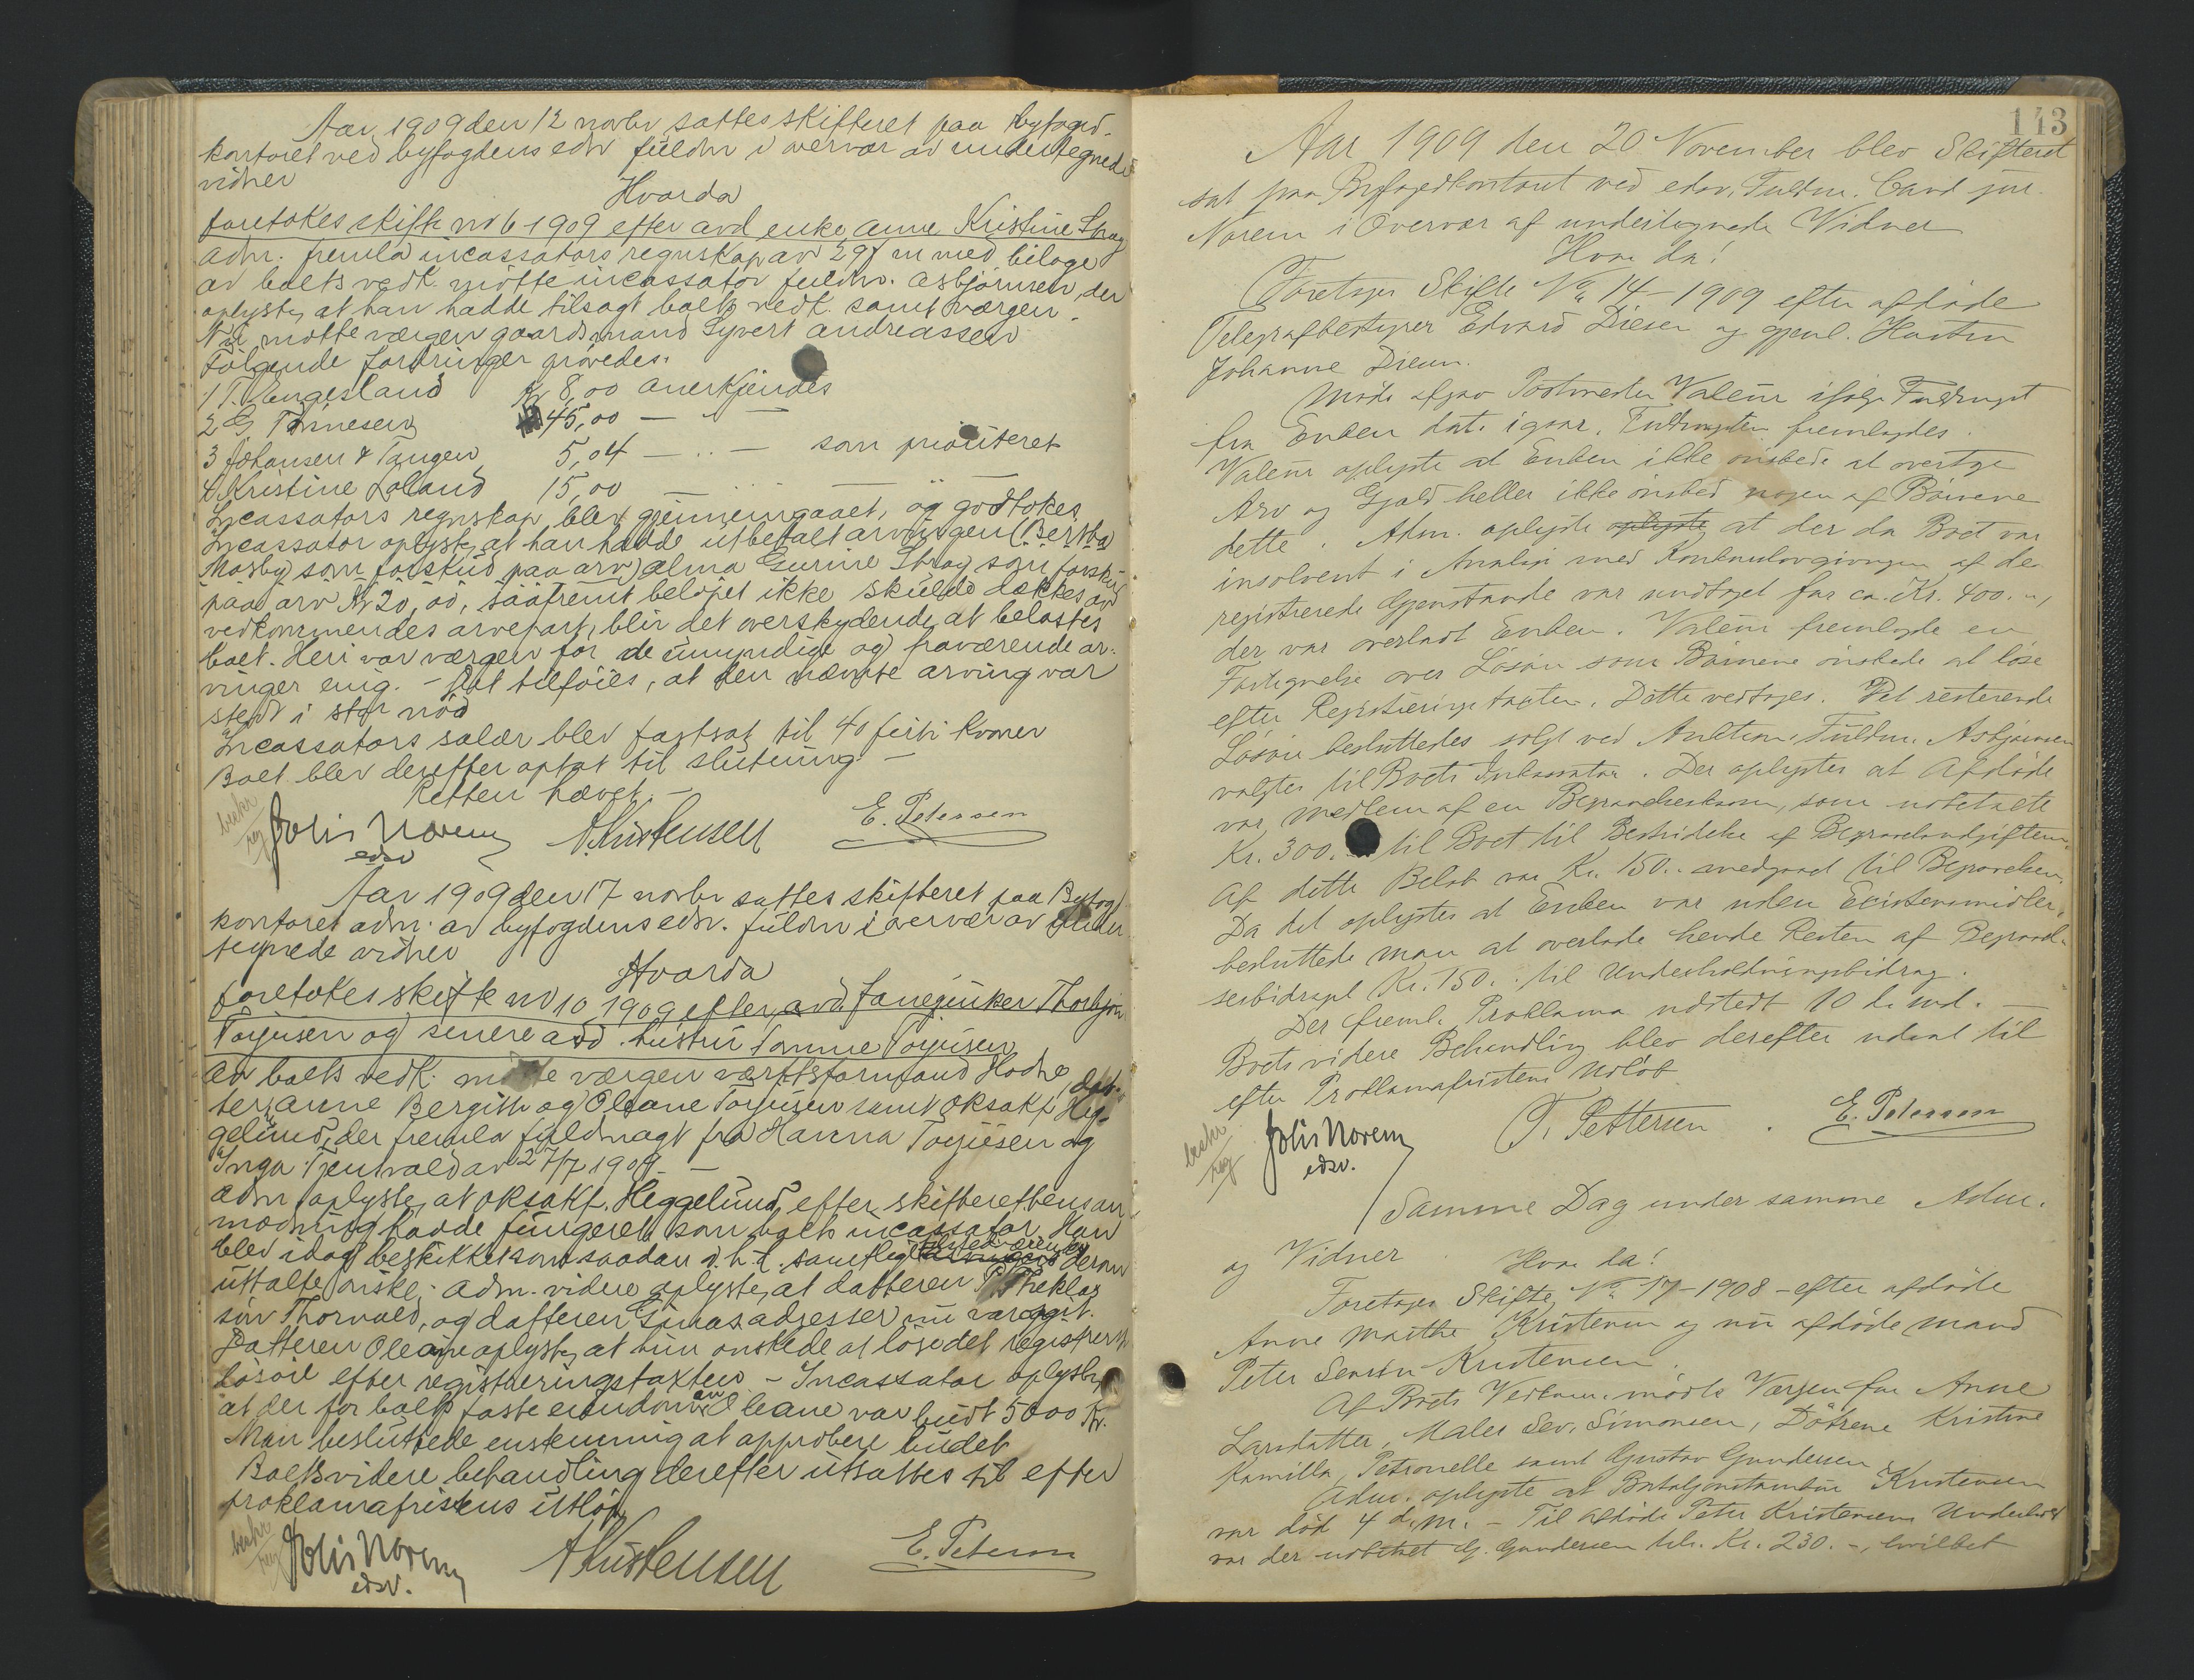 Aar 1909 den 12 novbr sattes skifteret paa byfogd-
kontoret ved byfogdens edsv fuldm i overvær av undertegnede
vidner
Hvorda
foretokes skifte no 6 1909 efter avd enke Anne Kristine Skrag
Adm. fremla incassators regnskap av 29/ m med bilage
av boets vedk. mötte incassator fuldm. Asbjörnsen, der
oplyste, at han hadde tilsagt boets vedk. samt værgen.
mötte værgen gaardsmand Syvert Andreassen
Følgende fordringer prövedes.
1 T. Engesland Kr 8,00 anerkjendes
2 G Tönnesen 45,00 — " —
3 Johansen & Tangen 5,04 — " — som prioriteret
4 Kristine Loland 15,00 — " —
Incassators regnskap blev gjennemgaaet, og godtokes
Incassator oplyste, at han hadde utbetalt arvingen (Bertha
Mosby som forskud paa arv) Alma Gurine Skrag som forskud
paa arv Kr 20,00, saafremt belöpet ikke skulde dækkes av
vedkommendes arvepart, blir det overskydende at belastes
boet. Heri var værgen for de umyndige og fraværende ar-
vinger enig. - Det tilföies, at den nævnte arving var
stedt i stor nöd
Incassators salær blev fastsat til 40 firti kroner
Boet blev derefter optat til slutning. -
Retten hævet. -
bekr
reg
Johs Norem A Kristensen E. Petersen
edsv
Aar 1909 den 17 novbr sattes skifteret paa Byfogd
kontoret adm. av byfogdens edsv. fuldm i overvær av under
tegnede vidner
Hvorda
foretokes skifte no 10 1909 efter avd. Thorbjörn
Torjusen og senere avd. hustru Tomine Torjusen
Av boets vedk. mötte værgen værftsformand Hodne döt-
ter, Anne Bergitte og Oleane Torjusen samt O.R.sakf. Heg-
gelund, der fremla fuldmagt fra Hanna Torjusen og
Inga Tjentvald av 27/7 1909. -
Adm oplyste, at O.R.sakf. Heggelund, efter skifterettens an-
modning hadde fungeret som boets incassator. Han
blev idag beskikket som saadan i h. t. samtlige tilstedeværendes derom
uttalte önske. Adm. videre oplyste, at datteren Theklas
sön Thorvald, og datteren Ginas adresser nu var opgit.
Datteren Oleane oplyste, at hun önskede at löse det registrerte
lösöre efter registreringstaxten - Incassator oplyste,
at der for boets faste eiendom av Oleane var budt 5000 Kr.
Man besluttede enstemmig at approbere budet
Boets videre behandling derefter utsattes til efter
proklamafristens utlöp
bekr
reg
Johs Norem A Kristensen E. Petersen
edsv.
143
Aar 1909 den 20 November blev Skifteret
sat paa Byfogedkontoret ved edsv. Fuldm. Cand jur.
Norem i Overvær af undertegnede Vidner
Hvor da!
Foretoges Skifte No 14 - 1909 efter afdöde
Telegrafbestyrer Edvard Diesen og gjenl. Hustru
Johanne Diesen.
Möde afgav Postmester Valeur ifölge Fuldmagt
fra Enken dat. igaar. Fuldmagten fremlagdes.
Valeur oplyste at Enken ikke önskede at overtage
Arv og Gjæld heller ikke önsked nogen af Börnene
dette. Adm. oplyste oplyste at der da Boet var
insolvent i Analogi med Konkurslovgivngen af de
registrerede Gjenstande var undtaget for ca. Kr. 400.-,
der var overladt Enken. Valeur fremlagde en
Fortegnelse over Lösöre som Börnene önskede at löse
efter Registreringstaxten. Dette vedtoges. Det resterende
Lösöre besluttedes solgt ved Auktion. Fuldm. Asbjörnsen
valgtes til Boets Inkassator. Der oplystes at Afdöde
var medlem af en Begravelseskasse, som udbetalte
Kr. 300.- til Boet til Bestridelse af Begravelsudgiften.
Af dette Beløb var Kr. 150.- medgaaet til Begravelsen.
Da det oplystes at Enken var uden Existensmidler,
besluttede man at overlade hende Resten af Begravel-
sesbidraget Kr. 150.- til Underholdningsbidrag.
Der freml. Proklama udstedt 10 ds md. -
Boets videre Behandling blev derefter udsat til
efter Proklamafristens Udlöb
bekr
reg
Johs Norem T. Pettersen . E. Petersen
edsv.
Samme Dag under samme Adm.
og Vidner Hvor da!
Foretoges Skifte No 17 - 1908 - efter afdöde
Anne Marthe Kristensen og nu afdöde Mand
Peter Kristensen.
Af Boets Vedkom. mödte Værgen for Anne
Larsdatter, Maler Sev. Simonsen, Dötrene Kristine
Kamilla, Petronelle samt Gustav Gundersen
Adm. oplyste at Bataljonstambur Kristensen
var död 4 d. M. - Til afdöde Peter Kristensens Underhold
var der udbetalt G. Gundersen tils. Kr. 230.-, hvilket